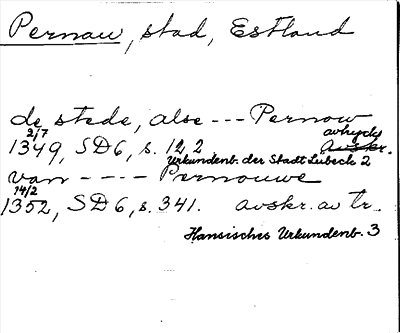 Pernau, stad, Estland
de stede, alse --- Pernow
2/7 avtryck
1349, SD6, s. 122 Avskr.
Urkundenb. der Stadt Lübeck 2
van ---- Pernouwe
14/2
1352, SD6, s. 341. avskr. av tr.
Hansisches Urkundenb. 3